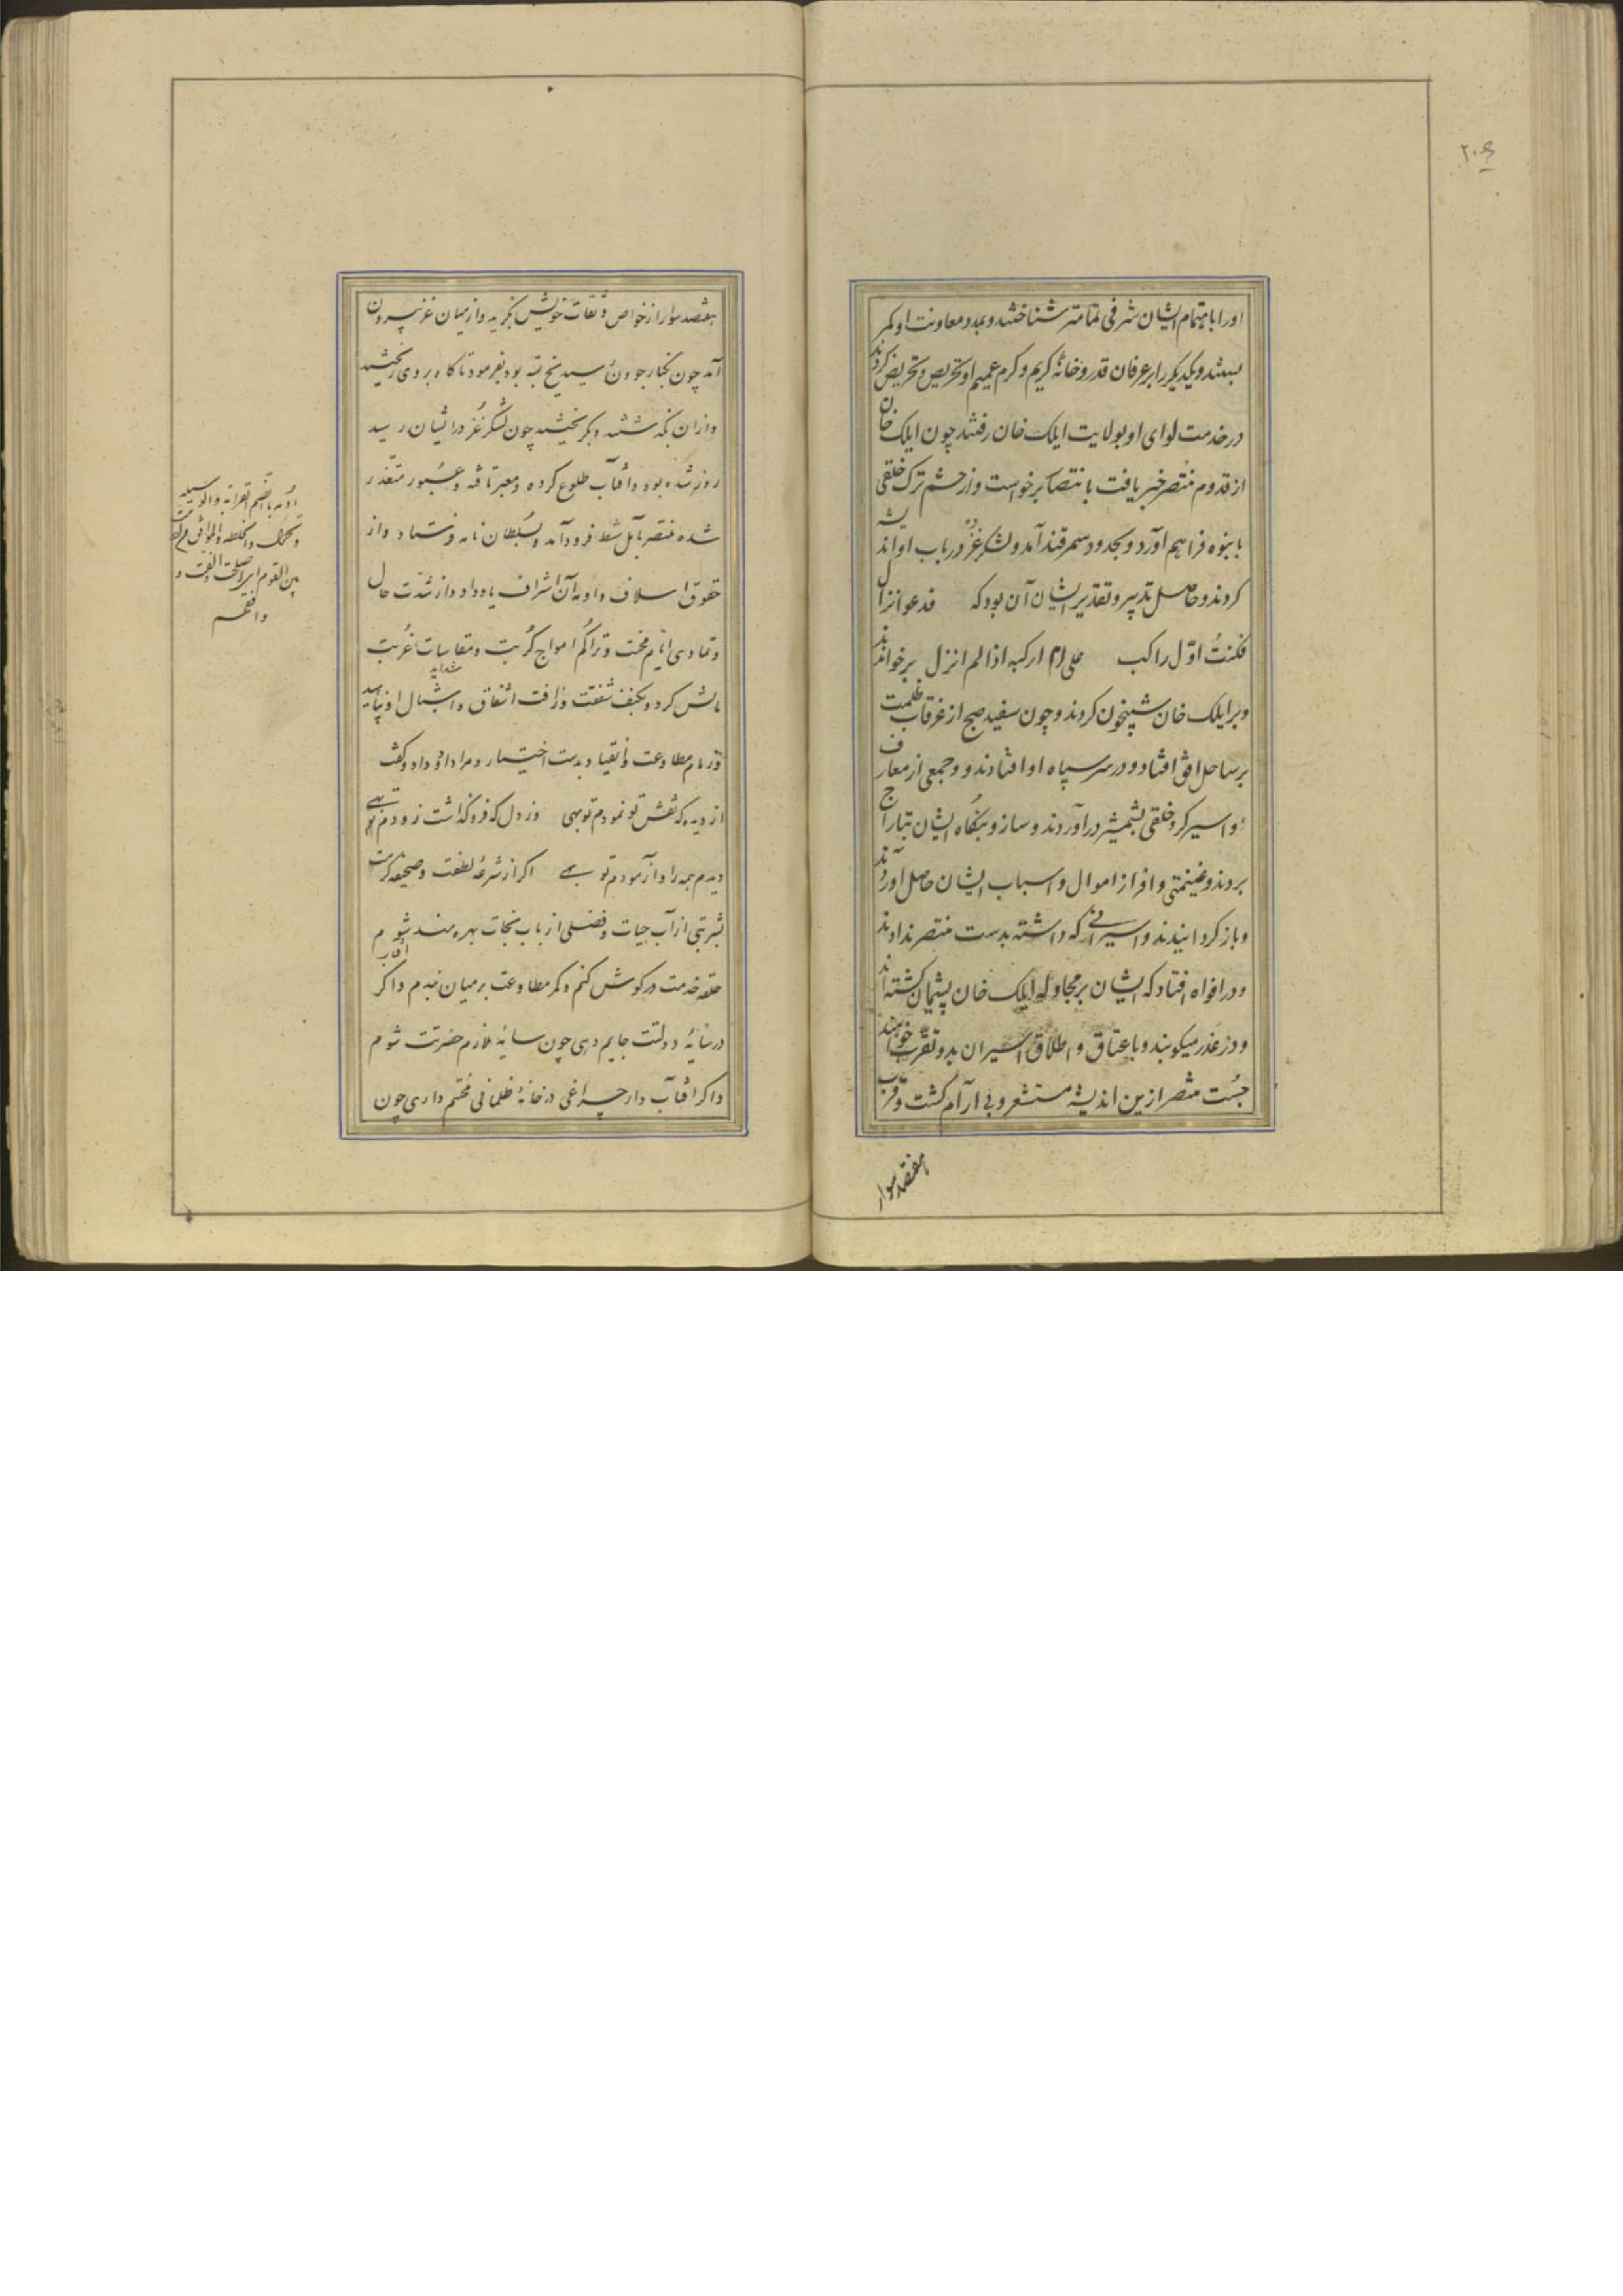 ۲۰۶
او را باهتمام ایشان شرفی تمامتر شناختند و بمدد معاونت او کمر
ببستند و یکدیگر را بر عرفان قدر و خانهٔ کریم و کرم عمیم او تحریص و تحریض کردند
در خدمت لوای او بولایت ایلک خان رفتند چون ایلک خان
از قدوم منتصر خبر یافت بانتصار برخواست و از حشم ترک خلقی
بانبوه فراهم آورد و بحدود سمرقند آمد و لشکر غز در باب او اندیشه
کردند و حاصل تدبیر و تقدیر ایشان آن بود که فدعوا نزال
فکنتُ اوّل راکب علی ام ارکبه اذا لم انزل برخواندند
و بر ایلک خان شبیخون کردند و چون سفید صبح از غرقاب ظلمت
بر ساحل افق افتاد و در سر سپاه او افتادند و وجمعی از معارف
او اسیر کرد خلقی بشمشیر درآوردند و ساز و بنگاه ایشان بتاراج
بردند و غنیمتی وافر از اموال و اسباب ایشان حاصل آوردند
و باز کردانیدند و اسیرانی که داشته بدست منتصر ندادند
و در افواه افتاد که ایشان بر مجادله ایلک خان پشیمان کشته‌اند
و در عذر میکوبند و باعتاق و اطلاق اسیران بدو تقرب خواهند
جُست منتصر ازین اندیشه مستشعر و بی آرام کشت و قرب
هفتصد سوار
هفتصد سوار از خواص و ثقات خویش بگزید و از میان غز بیرون
آمد چون بکنار جوون رسید یخ بسته بود بفرمود تا کاه بر وی ریختند
و از ان بگذشتند و بگریختند چون لشکر غُز در اثر ایشان رسید
روز شده بود و آفتاب طلوع کرده و معبر تافته و عبور متعذر
شده منتصر بآمل شط فرود آمد و بسُلطان نامه فرستاد و از
حقوق اسلاف و اومه آن اشراف یاد داد و از شدّت حال
و تمادی ایّام محنت و تراکُم امواج کُربت و مقاسات غُربت
شداید
مالش کرد و بکنف شفقت و رأفت اشفاق و اشبال او پناهید
و زمام مطاوعت و انقیاد بدست اختیار و مراد او داد و گفت
از دیده که نقش تو نمودم تو بهی وز دل که فرو گذاشت زودم تو بهی
دیدم همه را و آزمودم تو بهی اکر از شرعهٔ لطفت و صحیفه کرمت
شربتی از آب حیات و فضلی از باب نجات بهره‌مند شوم
حلقه خدمت در کوش کنم و کمر مطاوعت بر میان بندم و اکر
در سایهٔ دولتت جایم دهی چون سایه ملازم حضرت شوم
و اکر آفتاب وار چراغی در خانهٔ ظلمانی فحتم داری چون
اُدمه بالضم القرابه والوسیله
و تحرک والخلطه والموافق
بین القوم اصلحت الفت و
وافقهم